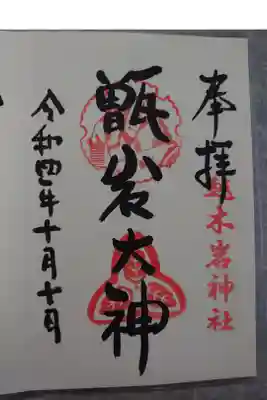 奉拝
越木岩神社
甑岩大神
令和四年十月十日